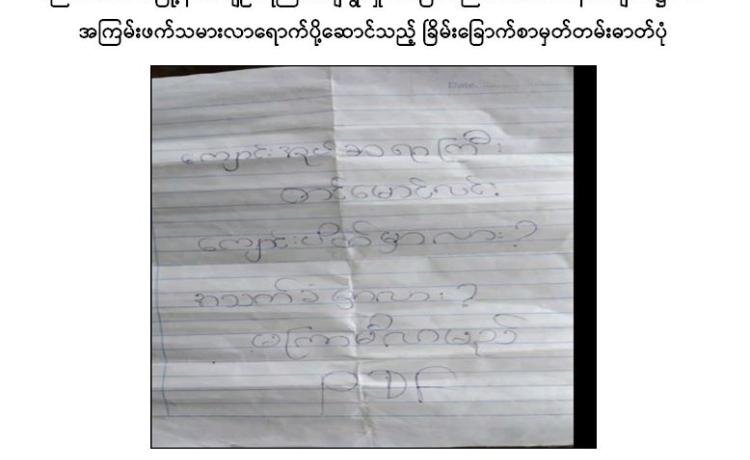 အကြမ်းဖက်သမားလာရောက်ပို့ဆောင်သည့် ခြိမ်းခြောက်စာမှတ်တမ်းဓာတ်ပုံ
Date
ကျောင်းအုပ်ဆရာကြီး
တင်မောင်လင်း
ကျောင်းပိတ်မှာလား?
အသက်ခံမှာလား?
မကြာမီလာမည်
PDF